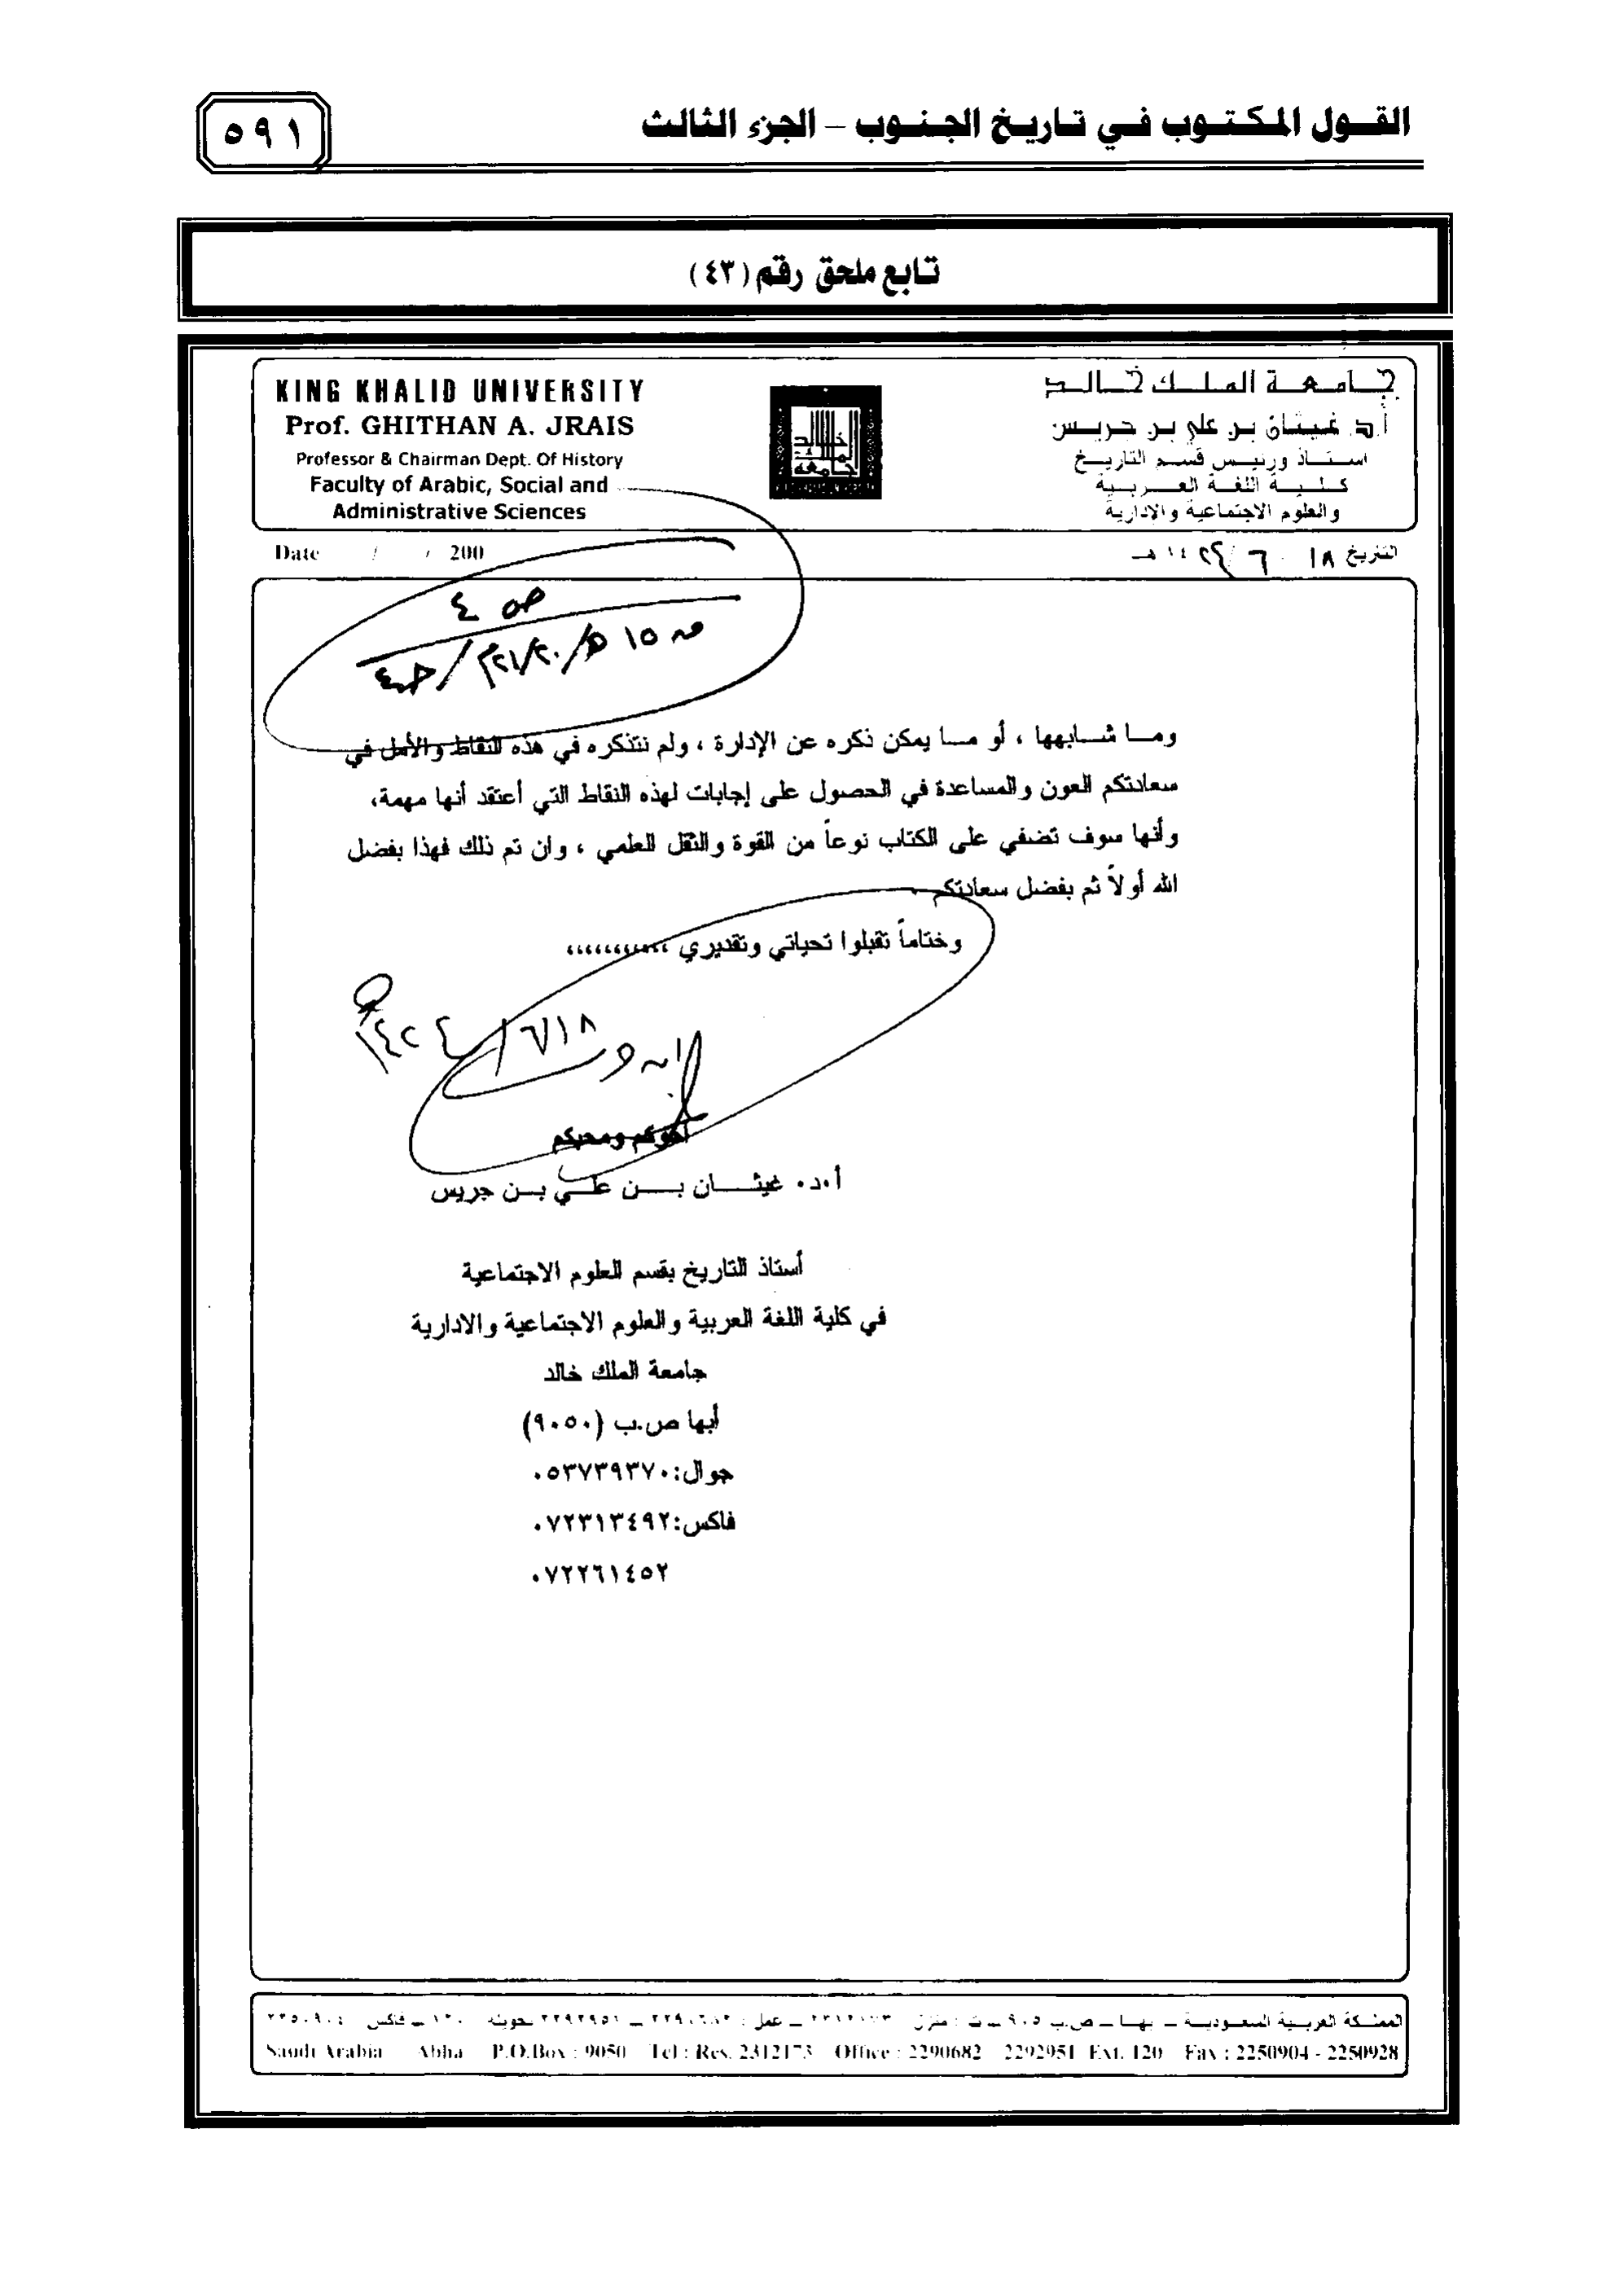 القول المكتوب في تاريخ الجنوب – الجزء الثالث
٥٩١
تابع ملحق رقم (٤٣)
KING KHALID UNIVERSITY
Prof. GHITHAN A. JRAIS
Professor & Chairman Dept. Of History
Faculty of Arabic, Social and
Administrative Sciences
جامعة الملك خالد
أ.د. غيثان بن علي بن جريس
استاذ ورئيس قسم التاريخ
كلية اللغة العربية
والعلوم الاجتماعية والإدارية
جامعة الملك خالد
Date / / 200
التاريخ ١٨ ٦ / ١٤٢٤ هـ
ص ٤
وما شابهها ، أو ما يمكن ذكره عن الإدارة ، ولم نتذكره في هذه النقاط والأمل في
سعادتكم العون والمساعدة في الحصول على إجابات لهذه النقاط التي أعتقد أنها مهمة،
وأنها سوف تضفي على الكتاب نوعاً من القوة والثقل العلمي ، وان تم ذلك فهذا بفضل
الله أولاً ثم بفضل سعادتكم
وختاماً تقبلوا تحياتي وتقديري ،،،،،،،،،،،
١٨/٦/١٤٢٤هـ
أخوكم ومحبكم
أ.د. غيثان بن علي بن جريس
أستاذ التاريخ بقسم العلوم الاجتماعية
في كلية اللغة العربية والعلوم الاجتماعية والادارية
جامعة الملك خالد
أبها ص.ب (٩٠٥٠)
جوال:٠٥٣٧٣٩٣٧٠
فاكس:٠٧٢٣١٣٤٩٢
٠٧٢٢٦١٤٥٢
المملكة العربية السعودية – أبها – ص.ب ٩٠٥٠ – ت : منزل ٢٣١٢١٧٣ – عمل : ٢٢٩٠٦٨٢ – ٢٢٩٢٩٥١ تحويلة ١٢٠ – فاكس ٢٢٥٠٩٠٤
Saudi Arabia Abha P.O.Box : 9050 Tel : Res. 2312173 Office : 2290682 2292951 Ext. 120 Fax : 2250904 - 2250928